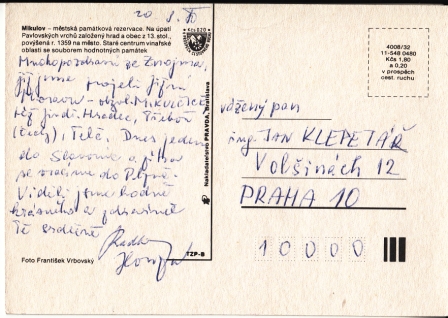 20. 8. 80
Mikulov – městská památková rezervace. Na úpatí
Pavlovských vrchů založený hrad a obec z 13. stol.,
povýšená r. 1359 na město. Staré centrum vinařské
oblasti se souborem hodnotných památek
Kčs 0,20
Mnoho pozdravů ze Znojma,
již jsme projeli jižní
Moravu - MIKULČICE
též jindř. Hradec, Třeboň
(Čechy), Telč. Dnes jedem
do Slavonic a zítra
se vracíme do Plzně.
Viděli jsme hodně
krásného a zdravíme
Tě srdečně
Foto František Vrbovský
TZP-B
Nakladatelstvo PRAVDA, Bratislava
4008/32
11-548 0480
Kčs 1,80
a 0,20
v prospěch
cest. ruchu
vážený pan
ing. JAN KLEPETÁŘ
Volšinách 12
PRAHA 10
10000